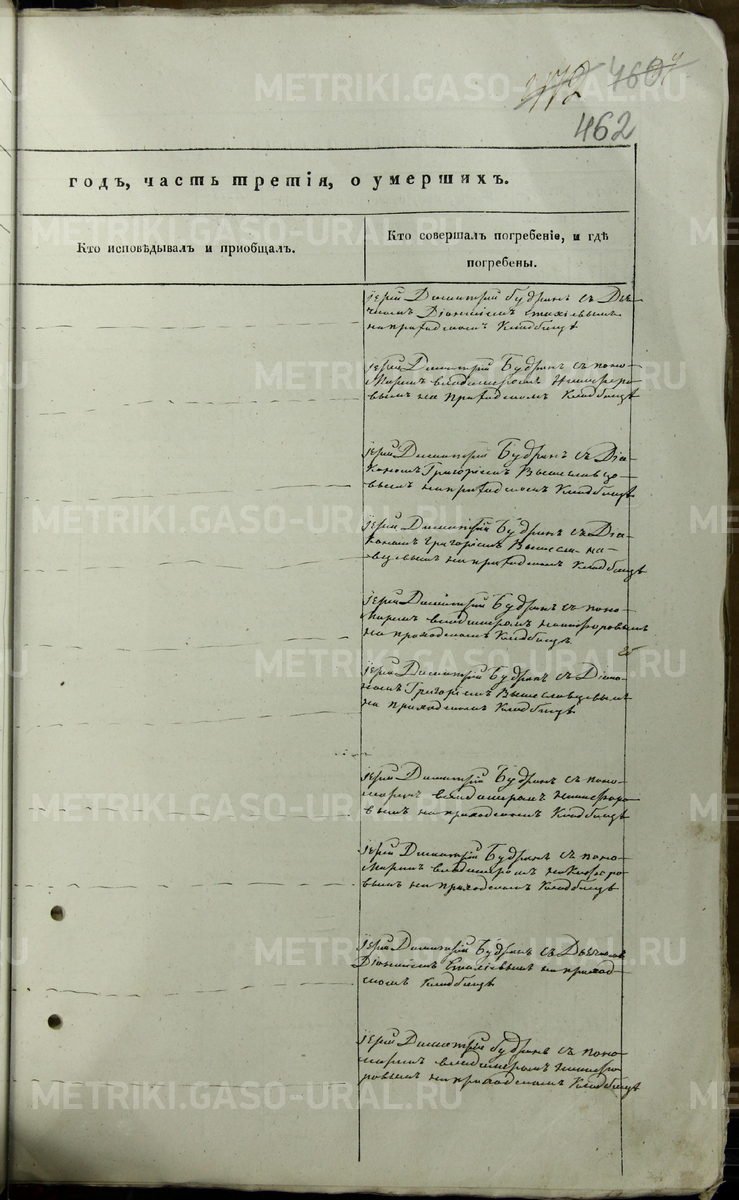 472 460
462
годъ, часть третія, о умершихъ.
Кто исповѣдывалъ и пріобщалъ.
Кто совершалъ погребеніе, и гдѣ
погребены.
Іерей Димитрій Будринъ съ Дья-
чкомъ Діонисіемъ
на приходскомъ Кладбищѣ
Іерей Димитрій Будринъ съ поно-
маремъ Владимиромъ Никифоро-
вымъ на Приходскомъ Кладбищѣ
Іерей Димитрій Будринъ съ Діа-
кономъ Григоріемъ Вышеславце-
вымъ на приходскомъ Кладбищѣ
Іерей Димитрій Будринъ съ Діа-
кономъ Григоріемъ Вышесла-
вцевымъ на приходскомъ Кладбищѣ
Іерей Димитрій Будринъ съ поно-
маремъ Владимиромъ Никифоровымъ
на приходскомъ Кладбищѣ
Іерей Димитрій Будринъ съ Діако-
номъ Григоріемъ Вышеславцевымъ
на приходскомъ Кладбищѣ
Іерей Димитрій Будринъ съ поно-
маремъ Владимиромъ Никифоро-
вымъ на приходскомъ Кладбищѣ
Іерей Димитрій Будринъ съ поно-
маремъ Владимиромъ Никифоро-
вымъ на приходскомъ Кладбищѣ
Іерей Димитрій Будринъ съ Дьячкомъ
Діонисіемъ на приход-
скомъ Кладбищѣ
Іерей Димитрій Будринъ съ поно-
маремъ Владимиромъ Никифо-
ровымъ на приходскомъ Кладбищѣ
METRIKI.GASO-URAL.RU